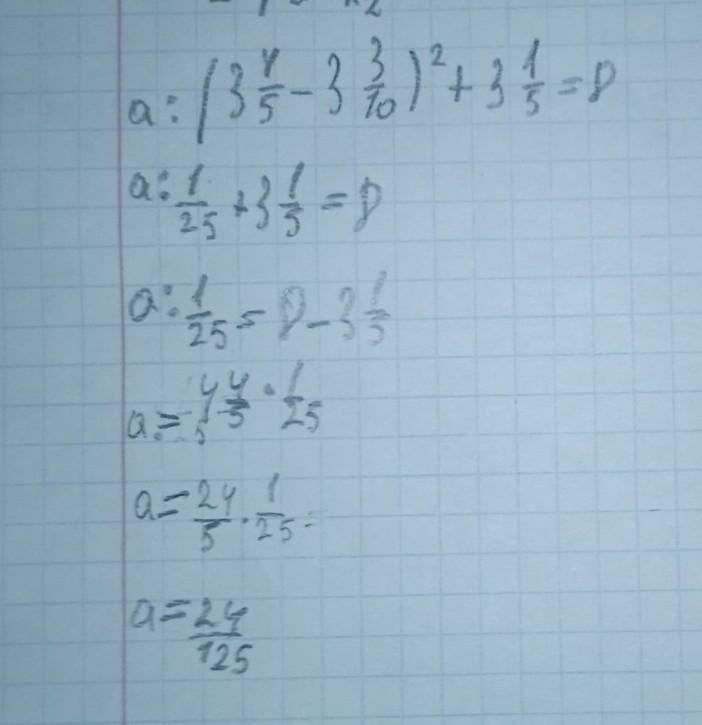 a : (3 4/5 - 3 3/10)² + 3 1/5 = 8
a : 1/25 + 3 1/5 = 8
a : 1/25 = 8 - 3 1/5
a = 4 4/5 · 1/25
a = 24/5 · 1/25 =
a = 24/125